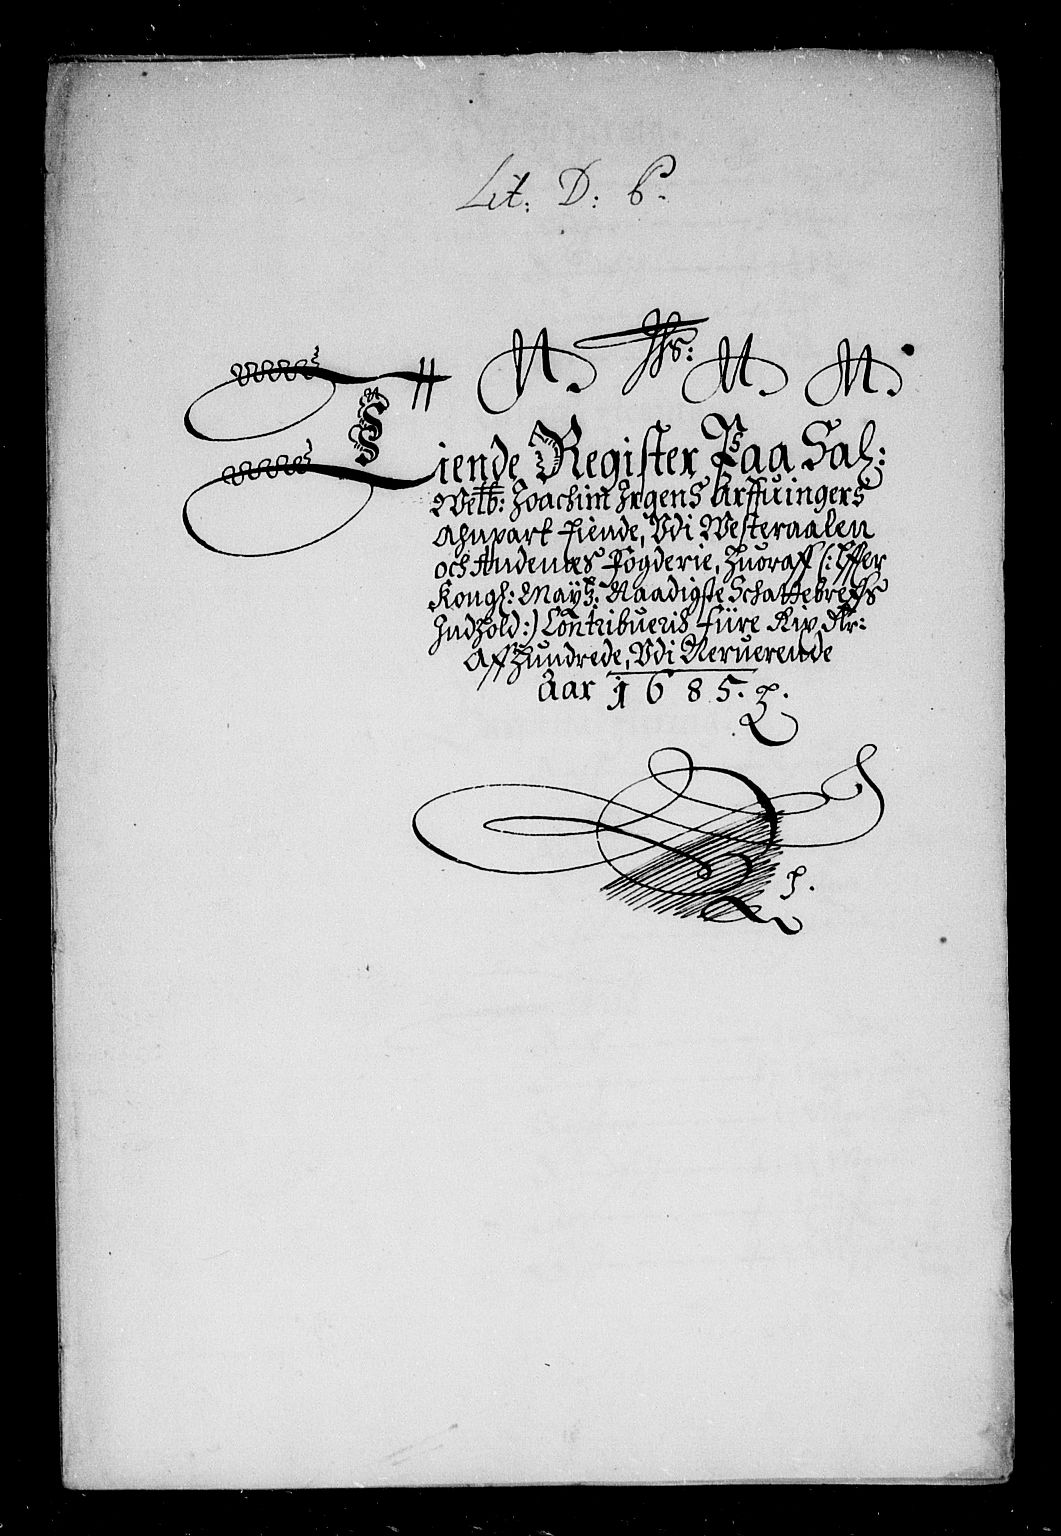 Lit: D: 6.
N. Jhs: N. N.
Tiende Register Paa Sal:
Welb: Joachim Irgens Arffuingers
Anpart Tiende, Udi Westeraalen
och Andenæs Fogderie, huoraff (: Effter
Kongl: Maytz: Naadigste Schattebreffs
Indhold :) Contribueris fiire Rix dlr:
Aff hundrede, Udi Neruerende
Aar 1685.